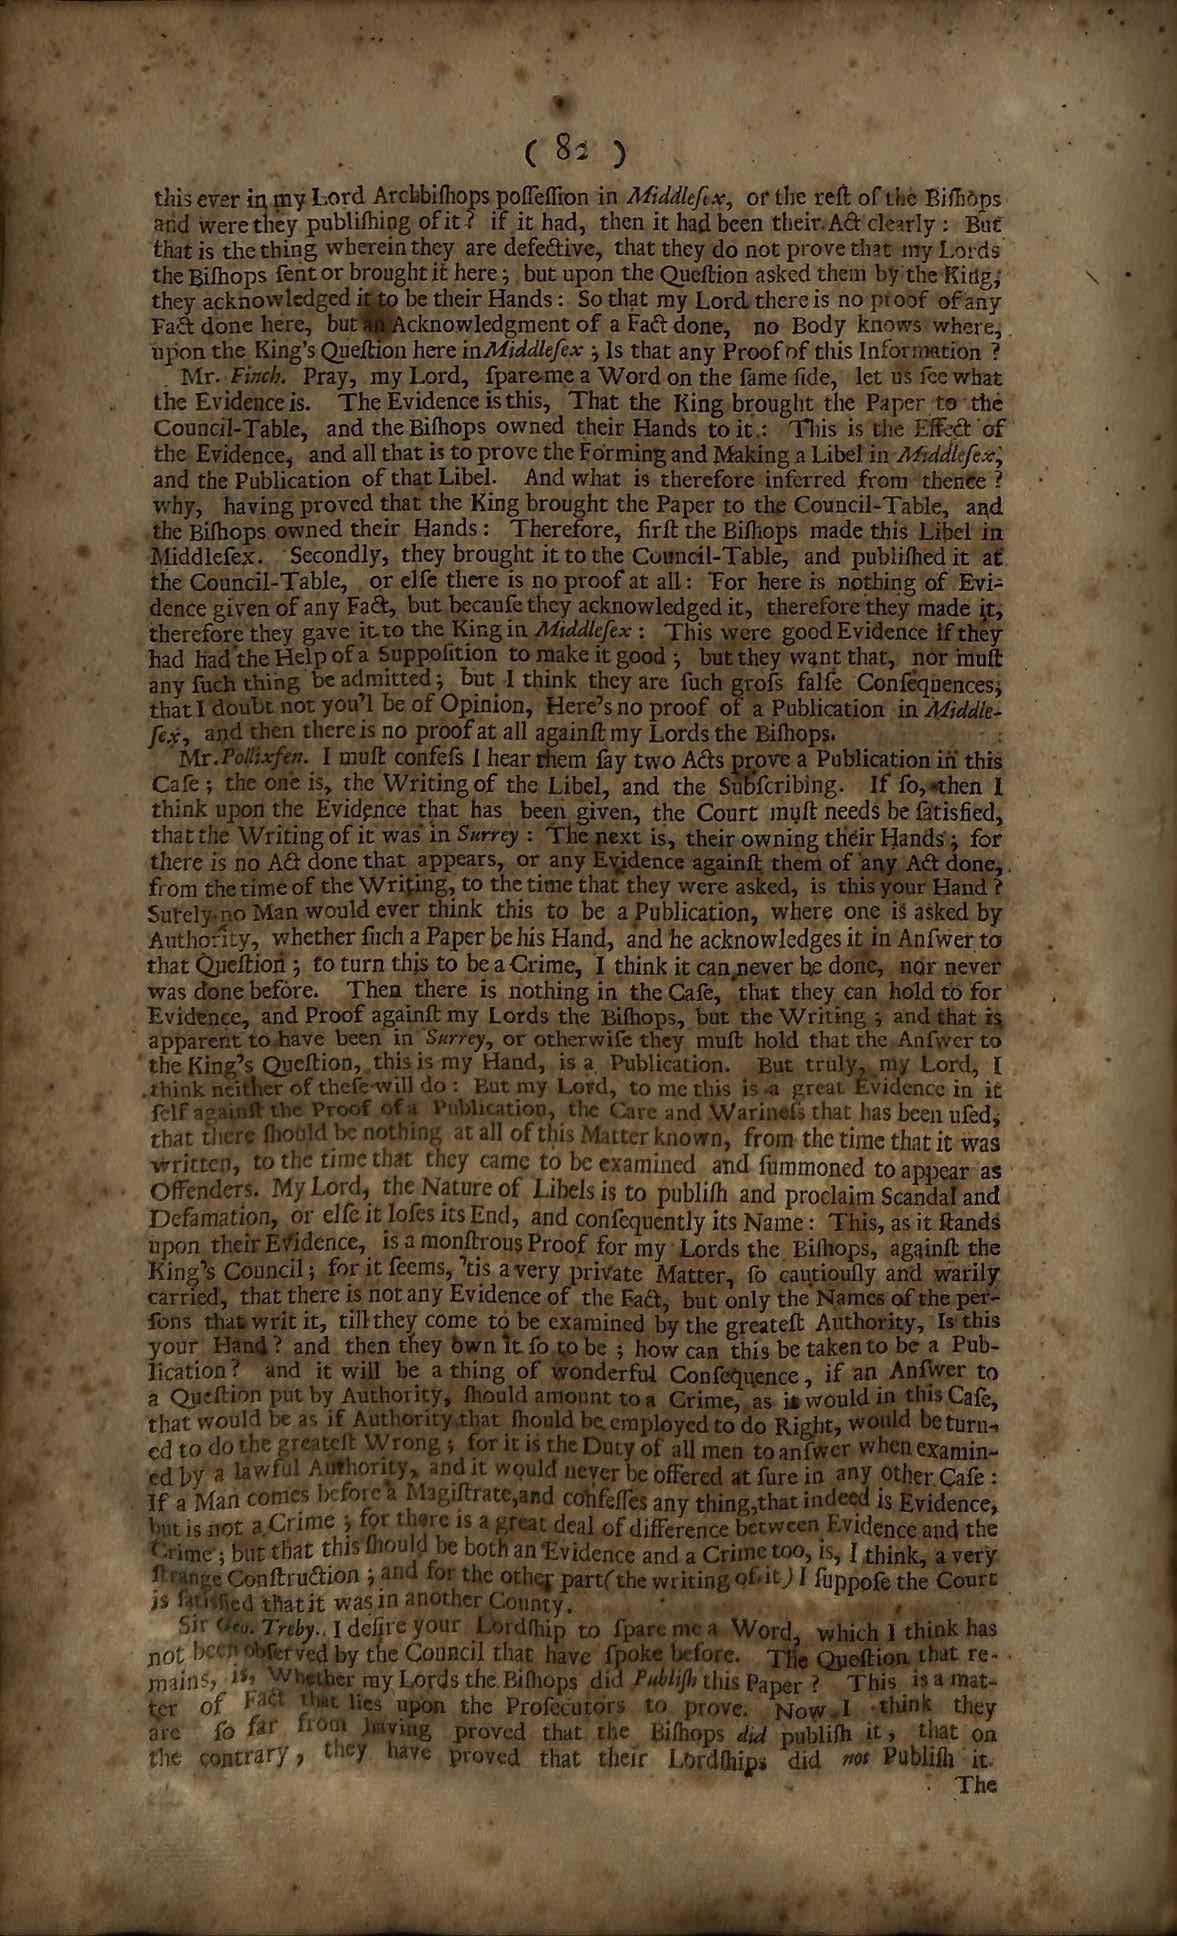 ( 82 )
this ever in my Lord Archbiſhops poſſeſſion in Middleſex, or the reſt of the Biſhops
and were they publiſhing of it? if it had, then it had been their Act clearly: But
that is the thing wherein they are defective, that they do not prove that my Lords
the Biſhops ſent or brought it here; but upon the Queſtion asked them by the King,
they acknowledged it to be their Hands: So that my Lord there is no proof of any
Fact done here, but an Acknowledgment of a Fact done, no Body knows where,
upon the King's Queſtion here in Middleſex; Is that any Proof of this Information?
Mr. Finch. Pray, my Lord, ſpare me a Word on the ſame ſide, let us ſee what
the Evidence is. The Evidence is this, That the King brought the Paper to the
Council-Table, and the Biſhops owned their Hands to it: This is the Effect of
the Evidence, and all that is to prove the Forming and Making a Libel in Middleſex,
and the Publication of that Libel. And what is therefore inferred from thence?
why, having proved that the King brought the Paper to the Council-Table, and
the Biſhops owned their Hands: Therefore, firſt the Biſhops made this Libel in
Middleſex. Secondly, they brought it to the Council-Table, and publiſhed it at
the Council-Table, or elſe there is no proof at all: For here is nothing of Evi-
dence given of any Fact, but becauſe they acknowledged it, therefore they made it,
therefore they gave it to the King in Middleſex: This were good Evidence if they
had had the Help of a Suppoſition to make it good; but they want that, nor muſt
any ſuch thing be admitted; but I think they are ſuch groſs falſe Conſequences,
that I doubt not you'l be of Opinion, Here's no proof of a Publication in Middle-
ſex, and then there is no proof at all againſt my Lords the Biſhops.
Mr. Pollixfen. I muſt confeſs I hear them ſay two Acts prove a Publication in this
Caſe; the one is, the Writing of the Libel, and the Subſcribing. If ſo, then I
think upon the Evidence that has been given, the Court muſt needs be ſatisfied,
that the Writing of it was in Surrey: The next is, their owning their Hands; for
there is no Act done that appears, or any Evidence againſt them of any Act done,
from the time of the Writing, to the time that they were asked, is this your Hand?
Surely no Man would ever think this to be a Publication, where one is asked by
Authority, whether ſuch a Paper be his Hand, and he acknowledges it in Anſwer to
that Queſtion; to turn this to be a Crime, I think it can never be done, nor never
was done before. Then there is nothing in the Caſe, that they can hold to for
Evidence, and Proof againſt my Lords the Biſhops, but the Writing; and that is
apparent to have been in Surrey, or otherwiſe they muſt hold that the Anſwer to
the King's Queſtion, this is my Hand, is a Publication. But truly, my Lord, I
think neither of theſe will do: But my Lord, to me this is a great Evidence in it
ſelf againſt the Proof of a Publication, the Care and Warineſs that has been uſed,
that there ſhould be nothing at all of this Matter known, from the time that it was
written, to the time that they came to be examined and ſummoned to appear as
Offenders. My Lord, the Nature of Libels is to publiſh and proclaim Scandal and
Defamation, or elſe it loſes its End, and conſequently its Name: This, as it ſtands
upon their Evidence, is a monſtrous Proof for my Lords the Biſhops, againſt the
King's Council; for it ſeems, 'tis a very private Matter, ſo cautiouſly and warily
carried, that there is not any Evidence of the Fact, but only the Names of the per-
ſons that writ it, till they come to be examined by the greateſt Authority, Is this
your Hand? and then they own it ſo to be; how can this be taken to be a Pub-
lication? and it will be a thing of wonderful Conſequence, if an Anſwer to
a Queſtion put by Authority, ſhould amount to a Crime, as it would in this Caſe,
that would be as if Authority that ſhould be employed to do Right, would be turn-
ed to do the greateſt Wrong; for it is the Duty of all men to anſwer when examin-
ed by a lawful Authority, and it would never be offered at ſure in any other Caſe:
If a Man comes before a Magiſtrate, and confeſſes any thing, that indeed is Evidence,
but is not a Crime; for there is a great deal of difference between Evidence and the
Crime; but that this ſhould be both an Evidence and a Crime too, is, I think, a very
ſtrange Conſtruction; and for the other part (the writing of it) I ſuppoſe the Court
is ſatisfied that it was in another County.
Sir Geo. Treby. I deſire your Lordſhip to ſpare me a Word, which I think has
not been obſerved by the Council that have ſpoke before. The Queſtion that re-
mains, is, Whether my Lords the Biſhops did Publiſh this Paper? This is a mat-
ter of Fact that lies upon the Proſecutors to prove. Now I think they
are ſo far from having proved that the Biſhops did publiſh it, that on
the contrary, they have proved that their Lordſhips did not Publiſh it.
The